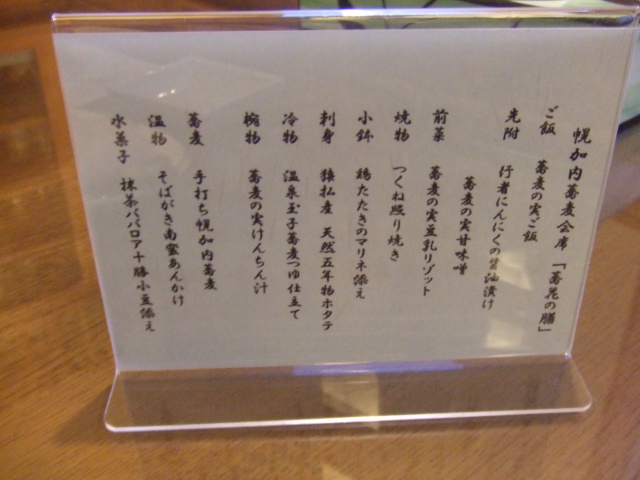 幌加内蕎麦会席 「蕎花の膳」
ご飯 蕎麦の実ご飯
先附 行者にんにくの醤油漬け
蕎麦の実甘味噌
前菜 蕎麦の実豆乳リゾット
焼物 つくね照り焼き
小鉢 鶏たたきのマリネ添え
刺身 猿払産 天然五年物ホタテ
冷物 温泉玉子蕎麦つゆ仕立て
椀物 蕎麦の実けんちん汁
蕎麦 手打ち幌加内蕎麦
温物 そばがき南蛮あんかけ
水菓子 抹茶ババロア十勝小豆添え